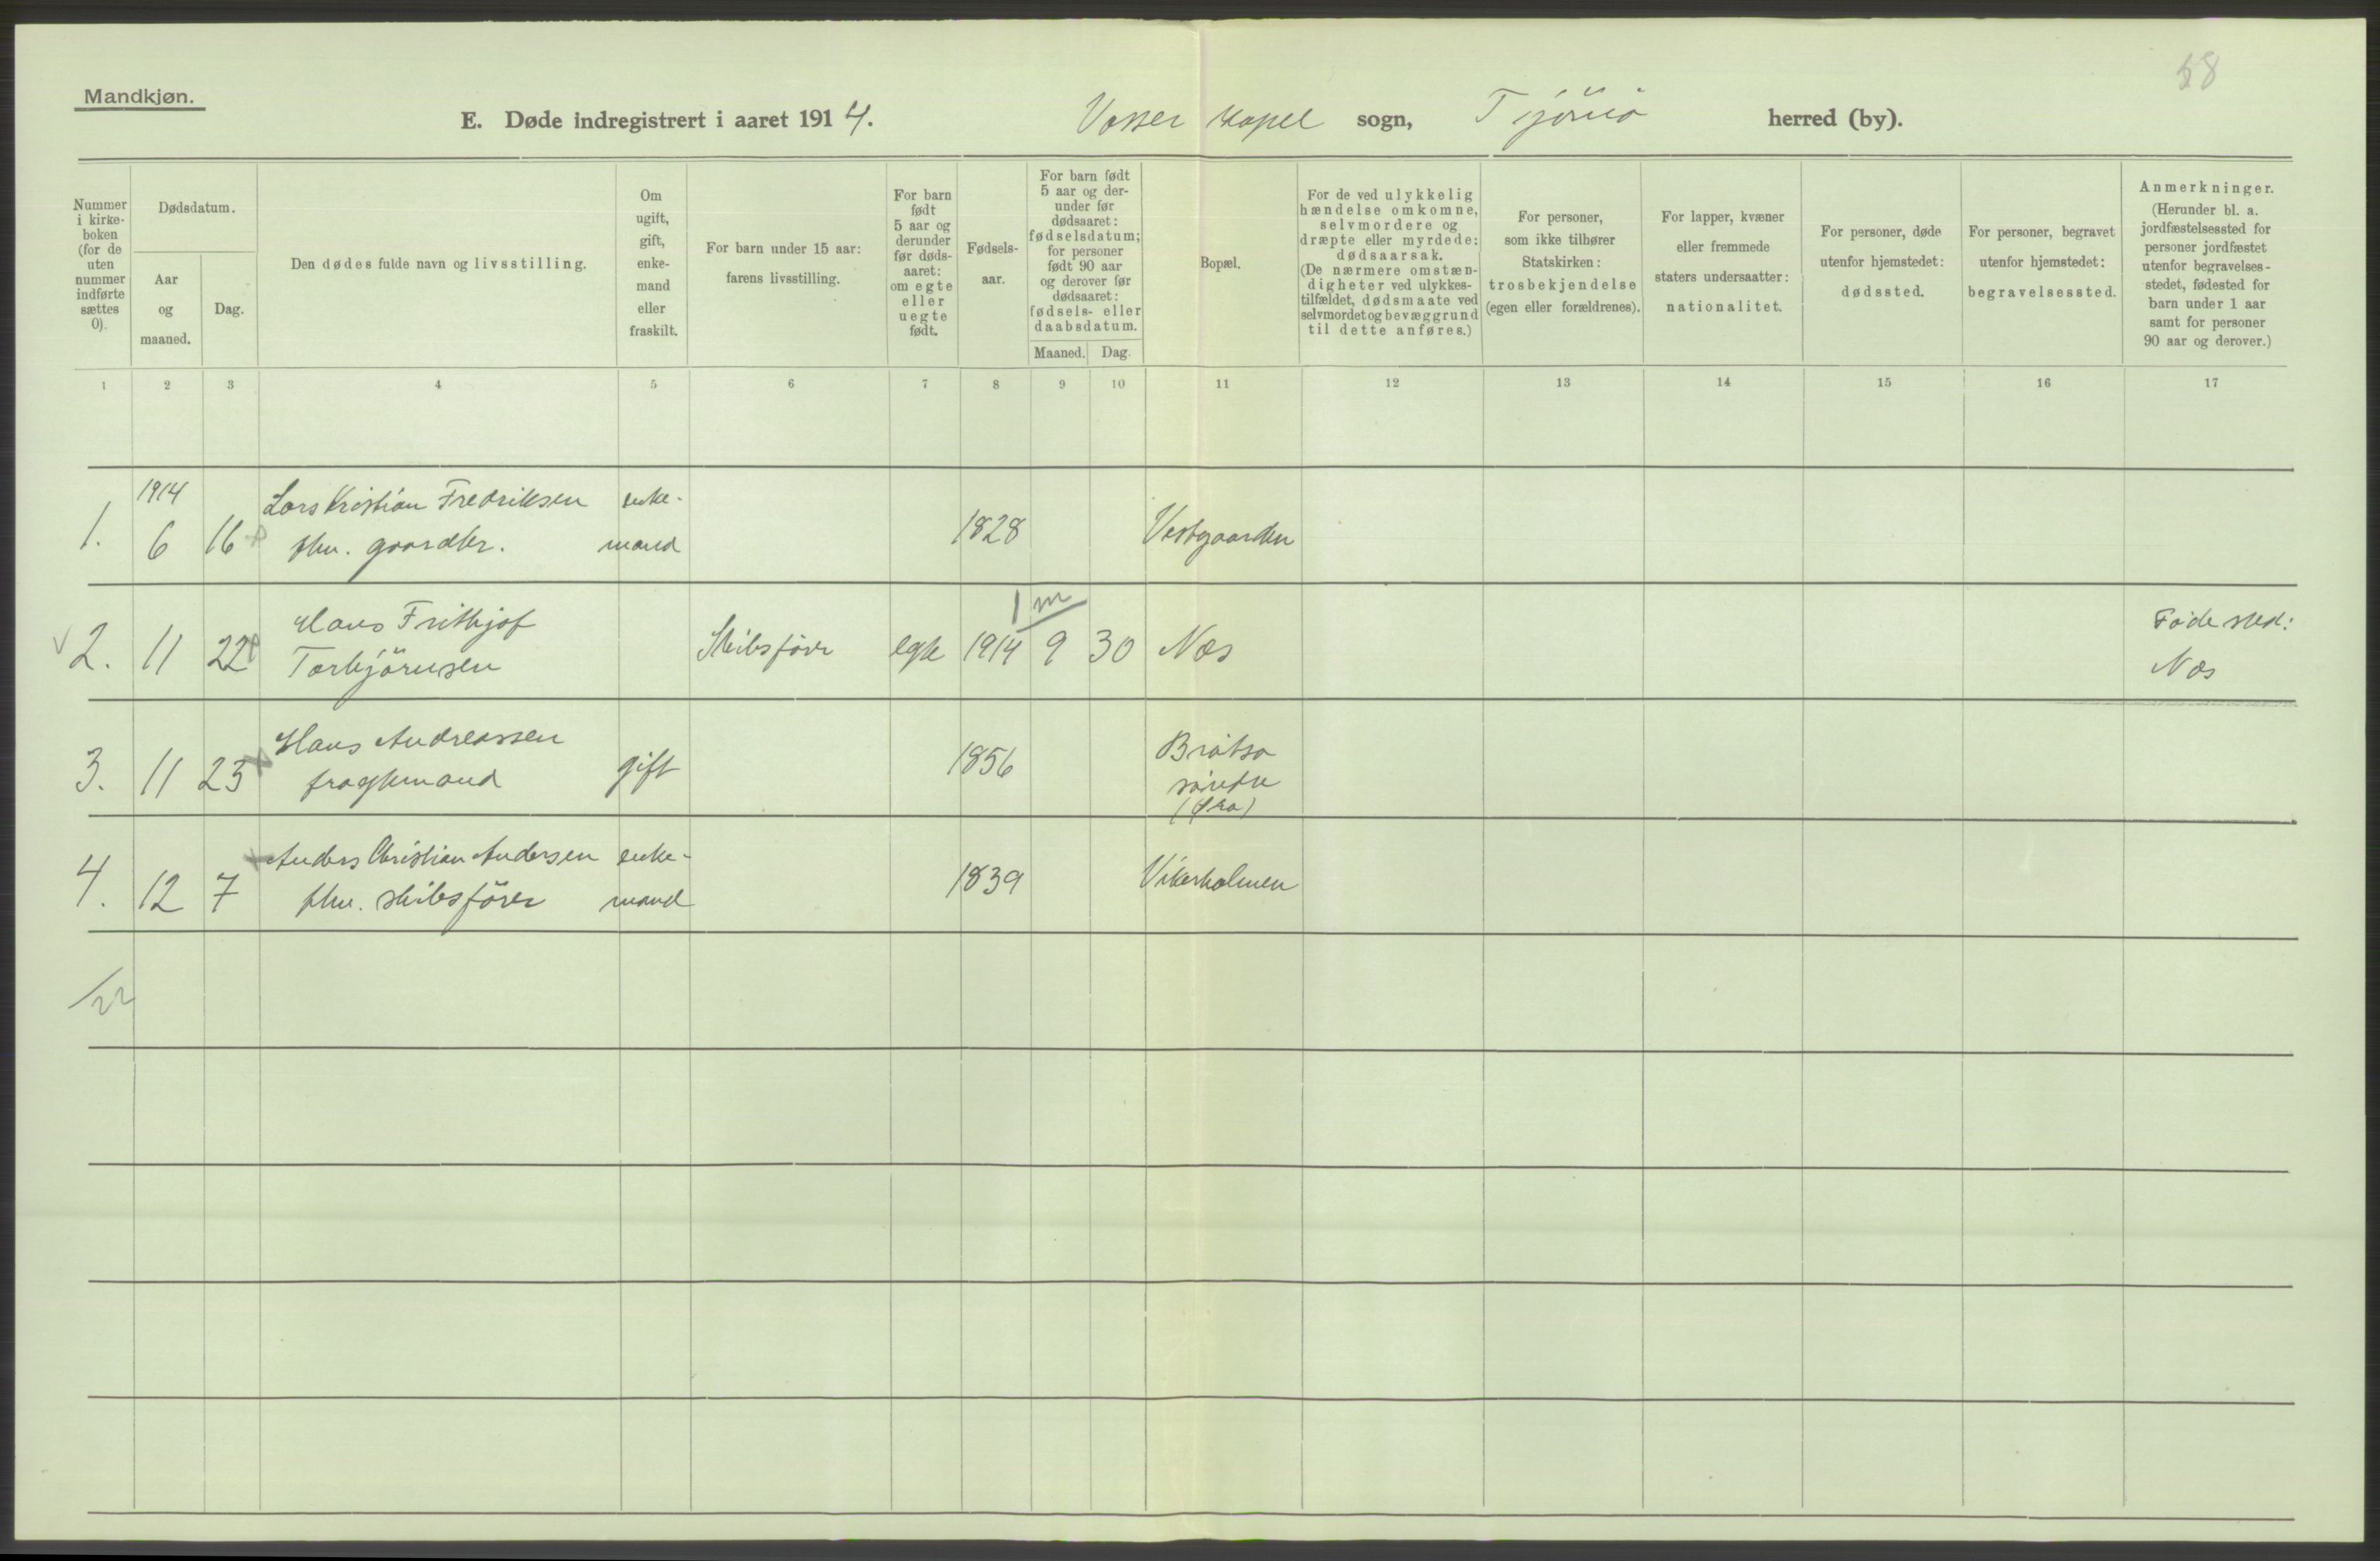 Mandkjøn.
58
E. Døde indregistrert i aaret 1914. Vasser kapel sogn, Tjømø herred (by).
Nummer i kirke- boken (for de uten nummer indførte sættes 0).
Dødsdatum.
Aar og maaned.
Dag.
Den dødes fulde navn og livsstilling.
Om ugift, gift, enke- mand eller fraskilt.
For barn under 15 aar: farens livsstilling.
For barn født 5 aar og derunder før døds- aaret: om egte eller uegte født.
Fødsels- aar.
For barn født 5 aar og der- under før dødsaaret: fødselsdatum; for personer født 90 aar og derover før dødsaaret: fødsels- eller daabsdatum.
Maaned. Dag.
Bopæl.
For de ved ulykkelig hændelse omkomne, selvmordere og dræpte eller myrdede: dødsaarsak. (De nærmere omstæn- digheter ved ulykkes- tilfældet, dødsmaate ved selvmordet og bevæggrund til dette anføres.)
For personer, som ikke tilhører Statskirken: trosbekjendelse (egen eller forældrenes).
For lapper, kvæner eller fremmede staters undersaatter: nationalitet.
For personer, døde utenfor hjemstedet: dødssted.
For personer, begravet utenfor hjemstedet: begravelsessted.
Anmerkninger. (Herunder bl. a. jordfæstelsessted for personer jordfæstet utenfor begravelses- stedet, fødested for barn under 1 aar samt for personer 90 aar og derover.)
1 2 3 4 5 6 7 8 9 10 11 12 13 14 15 16 17
1914
Lars Kristian Fredriksen enke-
1. 6 16 fhv. gaardbr. mand 1828 Vestgaarden
1 m
Hans Frithjof Fødested:
2. 11 22 Torbjörnsen Skibsfører egte 1914 9 30 Næs Næs
Hans Andreassen Bråtsø
3. 11 23 fragtemand gift 1856 söndre
Anders Christian Andersen enke-
4. 12 7 fhv. skibsförer mand 1839 Vikerholmen